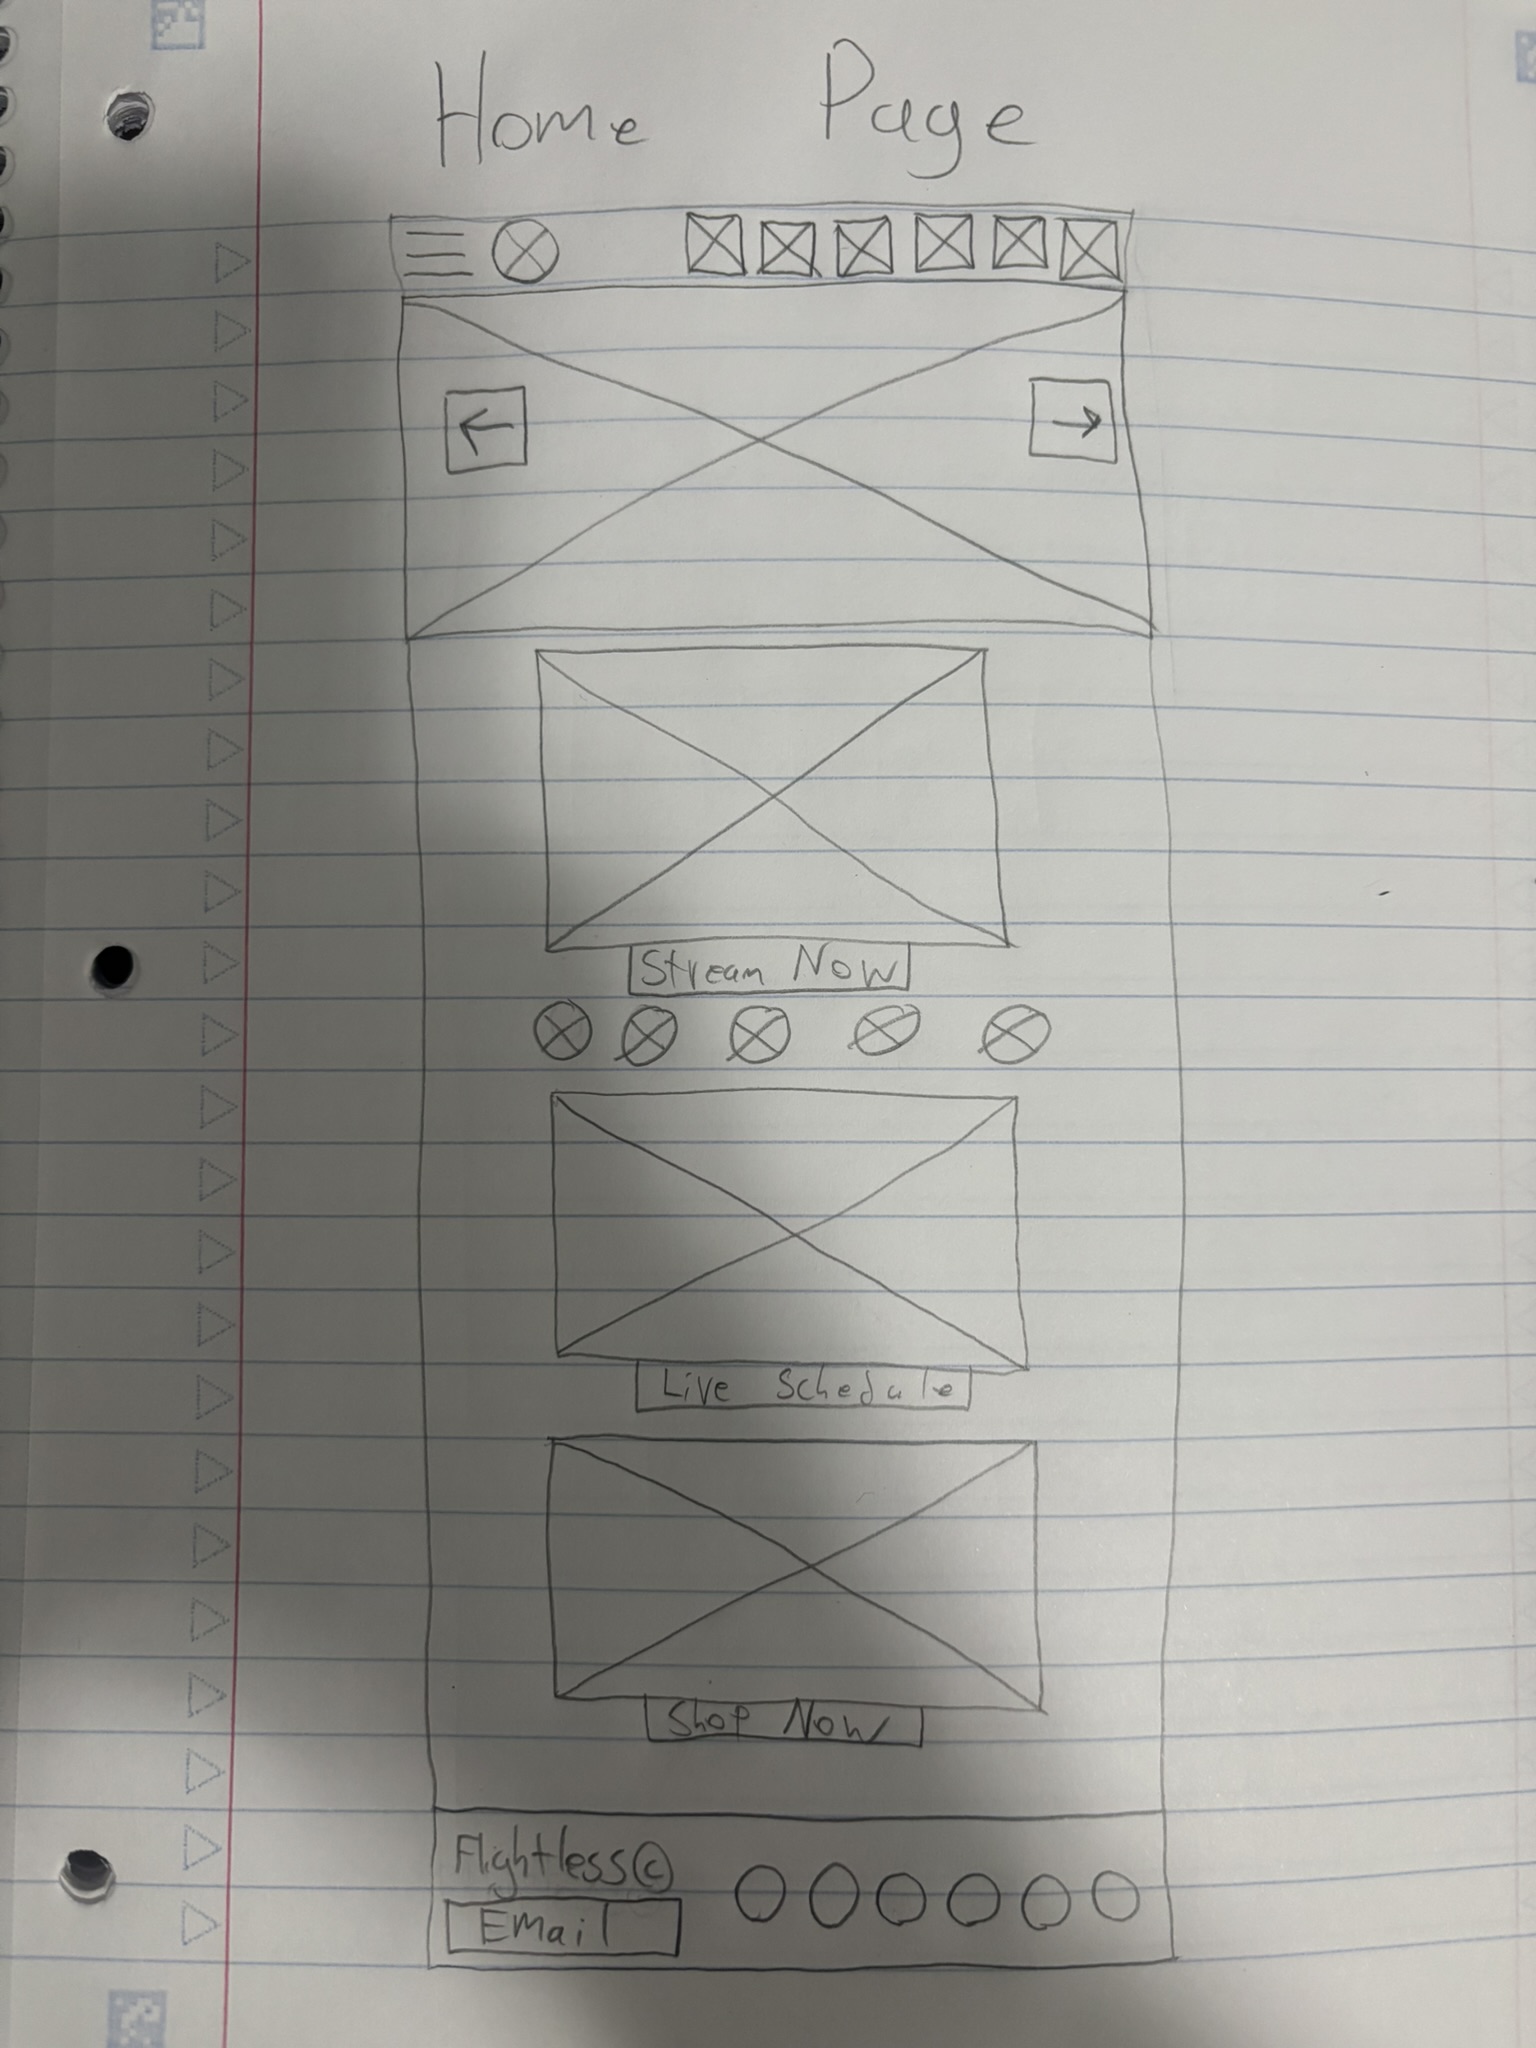 Home Page
Stream Now
Live Schedule
Shop Now
Flightless©
Email